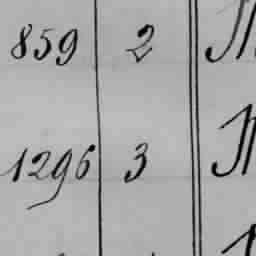 859 2
1296 3